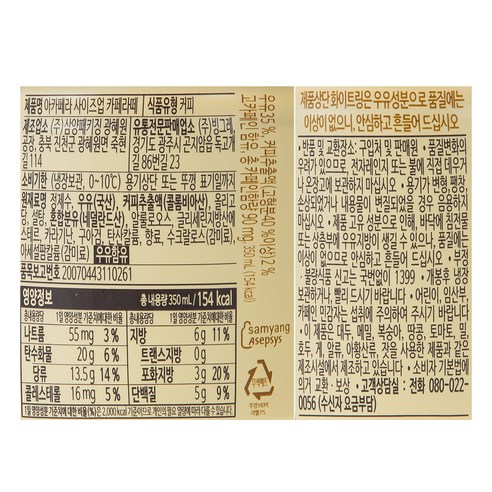 제품명 아카페라 사이즈업 카페라떼 식품유형 커피
제조업소 (주)삼양패키징 광혜원
공장: 충북 진천군 광혜원면 구암
길 114
유통전문판매업소 (주)빙그레,
경기도 광주시 곤지암읍 독고개
길 86번길 23
소비기한 (냉장보관, 0~10℃) 용기상단 또는 뚜껑 표기일까지
원재료명 정제수, 우유(국산), 커피추출액(콜롬비아산), 올리고
당, 설탕, 혼합분유(네덜란드산), 알룰로오스, 글리세린지방산에
스테, 카라기난, 구아검, 탄산칼륨, 향료, 수크랄로스(감미료),
아세설팜칼륨(감미료) 우유함유
품목보고번호 20070443110261
영양정보 총 내용량 350 mL / 154 kcal
총내용량당 1일 영양성분 기준치에 대한 비율 총내용량당 1일 영양성분 기준치에 대한 비율
나트륨 55 mg 3 % 지방 6 g 11 %
탄수화물 20 g 6 % 트랜스지방 0 g
당류 13.5 g 14 % 포화지방 3 g 20 %
콜레스테롤 16 mg 5 % 단백질 5 g 9 %
1일 영양성분 기준치에 대한 비율(%)은 2,000 kcal 기준이므로 개인의 필요 열량에 따라 다를 수 있습니다.
우유 35 %, 커피추출액(고형분 이상) 2 %
고카페인 함유 총 카페인함량 90 mg, 350 mL (154 kcal)
Samyang
Asepsys
무색페트
제품상단 화이트링은 우유성분으로 품질에는
이상이 없으니, 안심하고 흔들어 드십시오
• 반품 및 교환장소: 구입처 및 판매원 • 품질변화의
우려가 있으므로, 전자레인지 또는 불에 직접 대우거
나 온장고에 보관하지 마십시오 • 용기가 변형 팽창,
손상되었거나 내용물이 변질된 경우 음용을 금하여
주십시오 • 제품 고유 성분에 의해, 바닥에 침전물
또는 상부에 우유지방이 생길 수 있으나, 품질에는
이상이 없으므로 안심하고 흔들어 드십시오 • 부정
불량식품 신고는 국번없이 1399 • 개봉후 냉장
보관하거나, 빨리 드시기 바랍니다 • 어린이, 임산부,
카페인 민감자는 섭취에 주의하여 주시기 바랍니다
• 이 제품은 대두, 메밀, 복숭아, 땅콩, 토마토, 밀,
호두, 게, 알류, 아황산류, 잣을 사용한 제품과 같은
제조시설에서 제조하고 있습니다 • 소비자 기본법에
의거 교환 · 보상 • 고객상담실 : 전화 080-022-
0056 (수신자 요금부담)